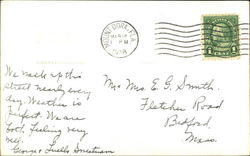 MOUNT DORA, FLA.
MAR
PM
1938
1
We walk up this
street nearly every
day. Weather is
perfect. We are
both feeling very
well.
George & Luella
Mr + Mrs. E. G. Smith.
Fletcher Road
Bedford,
Mass.